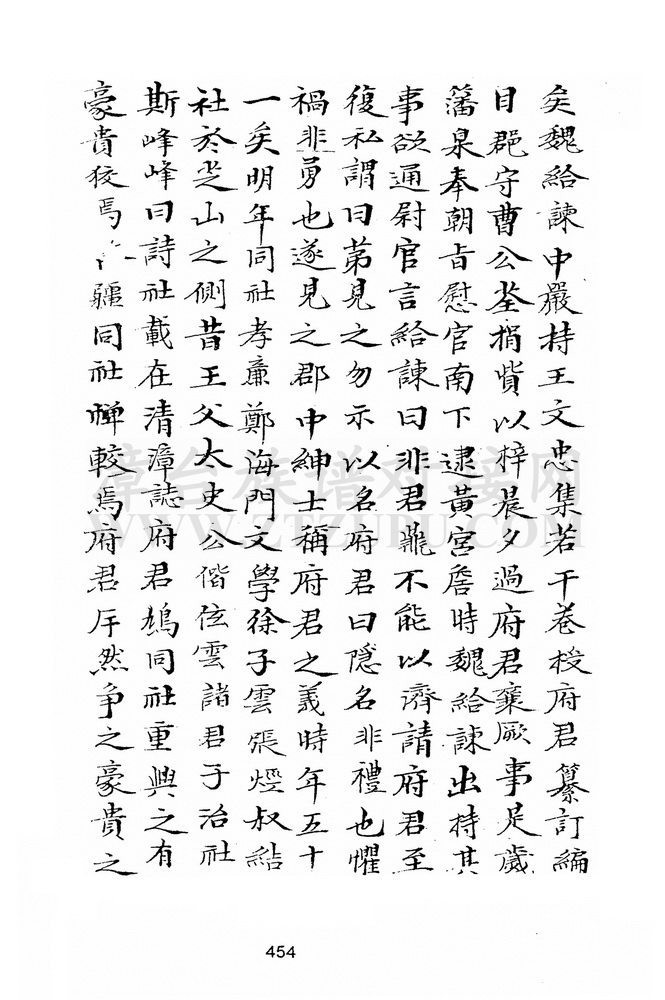 矣魏給諫中嚴持王文忠集若干卷授府君纂訂編
目郡守曹公荃捐貲以梓晨夕過府君稟厥事是歲
藩泉奉朝旨慰官南下逮黃宮詹時魏給諫出持其
事欲通尉官言給諫曰非君龍不能以濟請府君至
復私謂曰苐見之勿示以名府君曰隱名非禮也懼
禍非勇也遂見之郡中紳士稱府君之義時年五十
一矣明年同社孝廉鄭海門文學徐子雲張烴叔結
社於芝山之側昔王父太史公偕伭雲諸君子治社
斯峰峰曰詩社載在清漳誌府君鳩同社重興之有
豪貴狡焉疆同社憚較焉府君斥然争之豪貴之
漳台族谱对接网
WWW.ZTZUPU.COM
454